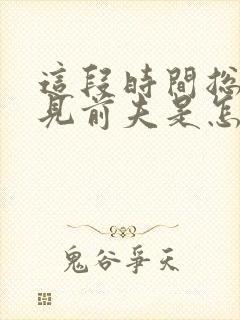 這段時間總
見前夫是怎
鬼谷爭天